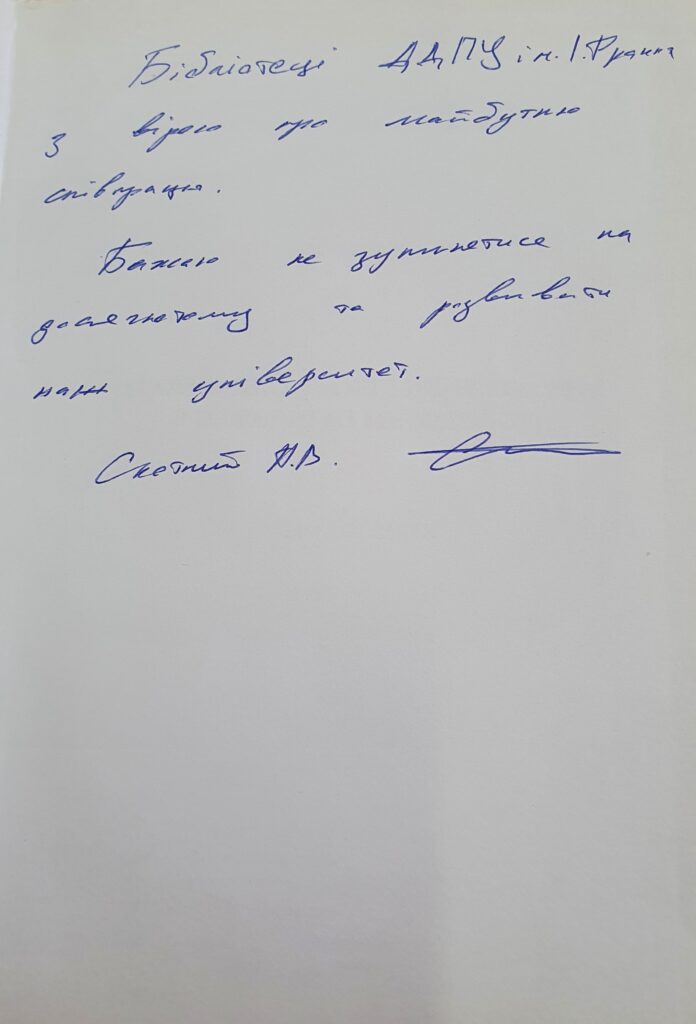 Бібліотеці ДДПУ ім. І. Франка
З вірою про майбутню
співпрацю.
Бажаю не зупинятися на
досягнутому та розвивати
наш університет.